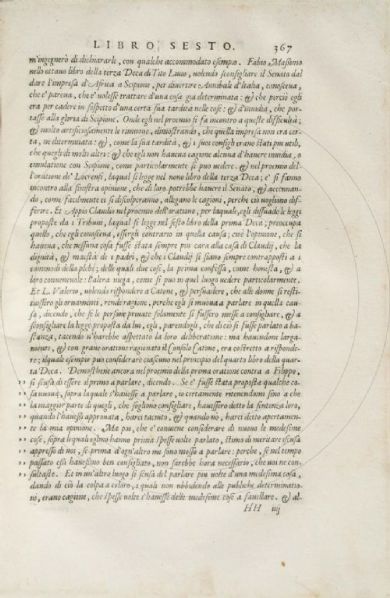 LIBRO SESTO. 367
m'ingegnerò di dichiararli, con qualche accommodato esempio. Fabio Massimo
nello ottauo libro della terza Deca di Tito Liuio, uolendo sconsigliare il Senato dal
dare l'impresa d'Africa a Scipione, per diuertere Annibale d'Italia, conosceua,
che e' pareua, che e' uolesse trattare d'una cosa gia determinata; & che perciò egli
era per cadere in sospetto d'una certa sua tardità nelle cose; & d'inuidia, che por-
tasse alla gloria di Scipione. Onde egli nel proemio si fa incontro a queste difficultà;
& molto artificiosamente le rimuoue, dimostrando, che quella impresa non era cer-
ta, ne determinata: &, come la sua tardità, & i suoi consigli erano stati piu utili,
che quegli di molti altri: & che egli non haueua cagione alcuna d'hauere inuidia, o
emulatione con Scipione, come particolarmente si può uedere. & nel proemio del-
l'oratione de' Locrensi, laqual si legge nel nono libro della terza Deca; e' si fanno
incontro alla sinistra opinione, che di loro potrebbe hauere il Senato, & accennan-
do, come facilmente ei si discolperanno, allegano le cagioni, perche ciò uogliono dif-
ferire. Et Appio Claudio nel proemio dell'oratione, per laquale, egli dissuade le leggi
proposte da i Tribuni, laqual si legge nel sesto libro della prima Deca; preoccupa
quello, che egli conosceua, essergli contrario in quella causa; cioè l'opinione, che si
haueua, che nessuna cosa fusse stata sempre piu cara alla casa di Claudij, che la
degnità, & maestà de i padri; & che i Claudij si siano sempre contrapposti a i
commodi della plebe; delle quali due cose, la prima confessa, come honesta, & a
loro conueneuole: l'altera niega, come si può in quel luogo uedere particolarmente.
Et L. Valerio, uolendo rispondere a Catone, & persuadere, che alle donne si resti-
tuissero gli ornamenti, rende ragioni, perche egli si muoua a parlare in quella cau-
sa, dicendo, che se le persone priuate solamente si fussero messe a consigliare, &
sconsigliare la legge proposta da lui, egli, parendogli, che di ciò si fusse parlato a ba-
stanza, tacendo n'harebbe aspettato la loro deliberatione: ma hauendone largа-
mente, & con graue oratione ragionato il Consolo Catone, era costretto a risponde-
re; il quale esempio può considerare ciascuno nel principio del quarto libro della quar-
ta Deca. Demosthene ancora nel proemio della prima oratione contra a Filippo,
si scusa di essere il primo a parlare, dicendo. Se e' fusse stata proposta qualche co-
sa nuoua, sopra la quale s'hauesse a parlare, io certamente attendendomi sino a che
la maggior parte di quegli, che sogliono consigliare, hauessero detto la sentenza loro,
quando l'hauessi approuata, harei taciuto. & quando nò, harei detto apertamen-
te la mia opinione. Ma poi, che e' conuiene considerare di nuouo le medesime
cose, sopra lequali eglino hanno prima spesse uolte parlato, stimo di meritare scusa
appresso di uoi, se prima d'ogn'altro mi sono messo a parlare: perche, se nel tempo
passato essi hauessino ben consigliato, non sarebbe hora necessario, che uoi ne con-
sultaste. Et in un'altro luogo si scusa del parlare piu uolte d'una medesima cosa,
dando di ciò la colpa a coloro, i quali non ubbidendo alle publiche determinatio-
ni, erano cagione, che spesse uolte s'hauesse delle medesime cose a fauellare. & al-
HH iiij